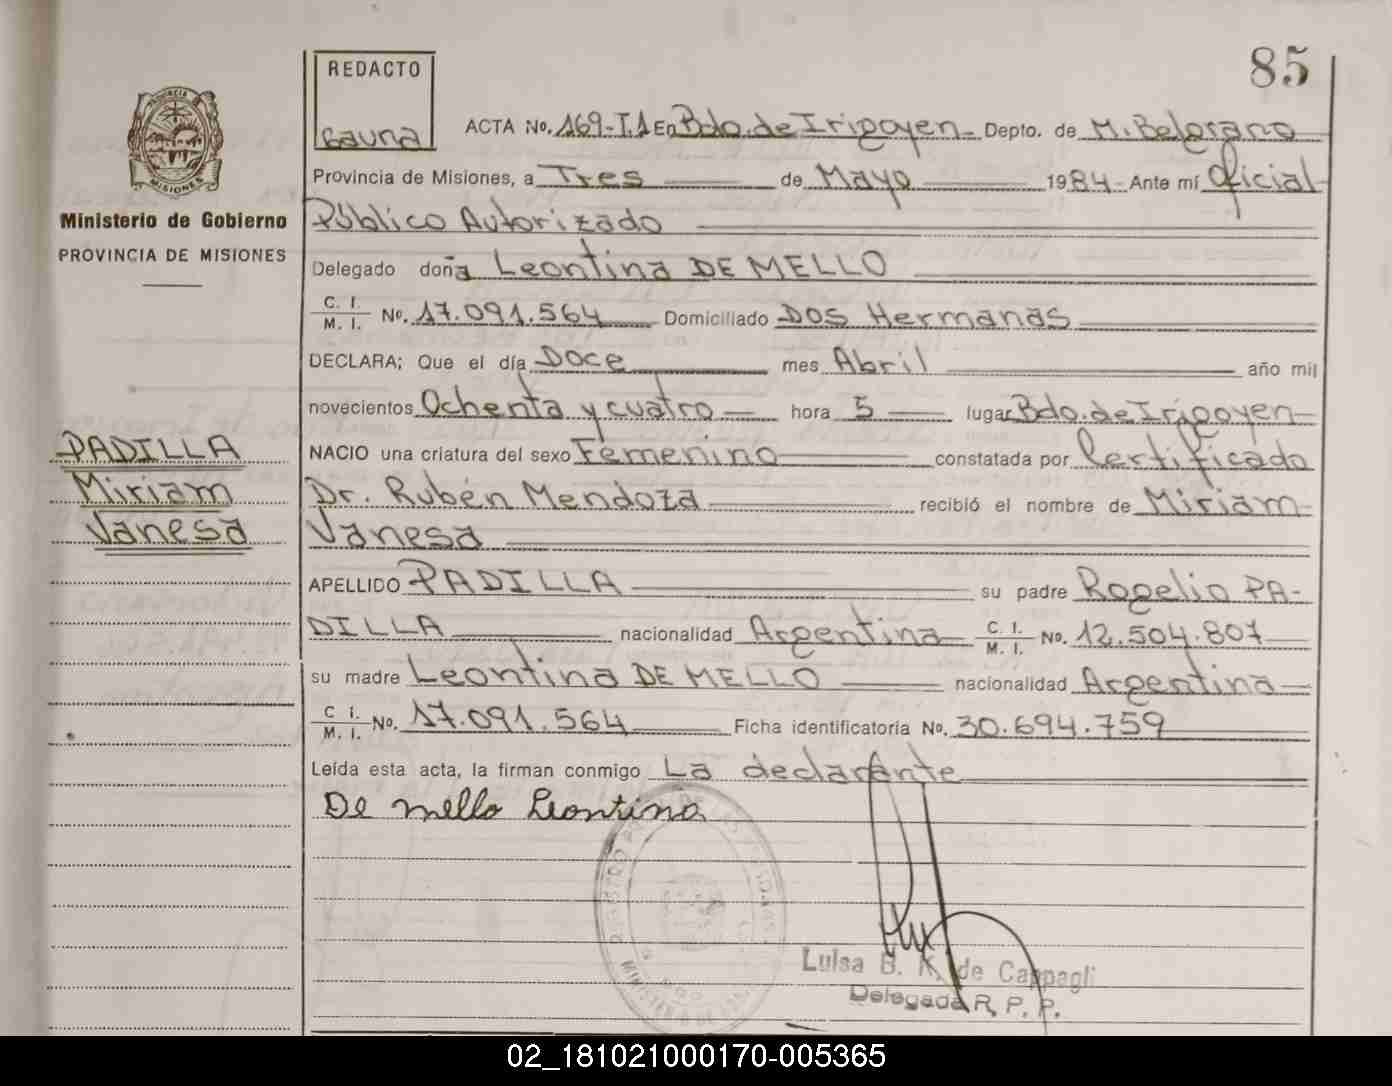 85
REDACTO
Gauna
ACTA No. 169-T.1 En Bdo. de Irigoyen - Depto. de M. Belgrano
Provincia de Misiones, a Tres de Mayo 1984 - Ante mí Oficial
Público Autorizado
Delegado doña Leontina DE MELLO
C. I. / M. I. No. 17.091.564 Domiciliado Dos Hermanas
DECLARA; Que el día Doce mes Abril año mil
novecientos Ochenta y cuatro hora 5 lugar Bdo. de Irigoyen
NACIO una criatura del sexo Femenino constatada por Certificado
Dr. Rubén Mendoza recibió el nombre de Miriam
Vanesa
APELLIDO PADILLA su padre Rogelio PA-
DILLA nacionalidad Argentina C. I. / M. I. No. 12.504.807
su madre Leontina DE MELLO nacionalidad Argentina
C. I. / M. I. No. 17.091.564 Ficha identificatoria No. 30.694.759
Leída esta acta, la firman conmigo La declarante
De mello Leontina
Luisa B. K. de Cappagli
Delegada R. P. P.
PROVINCIA
MISIONES
Ministerio de Gobierno
PROVINCIA DE MISIONES
PADILLA
Miriam
Vanesa
02_181021000170-005365